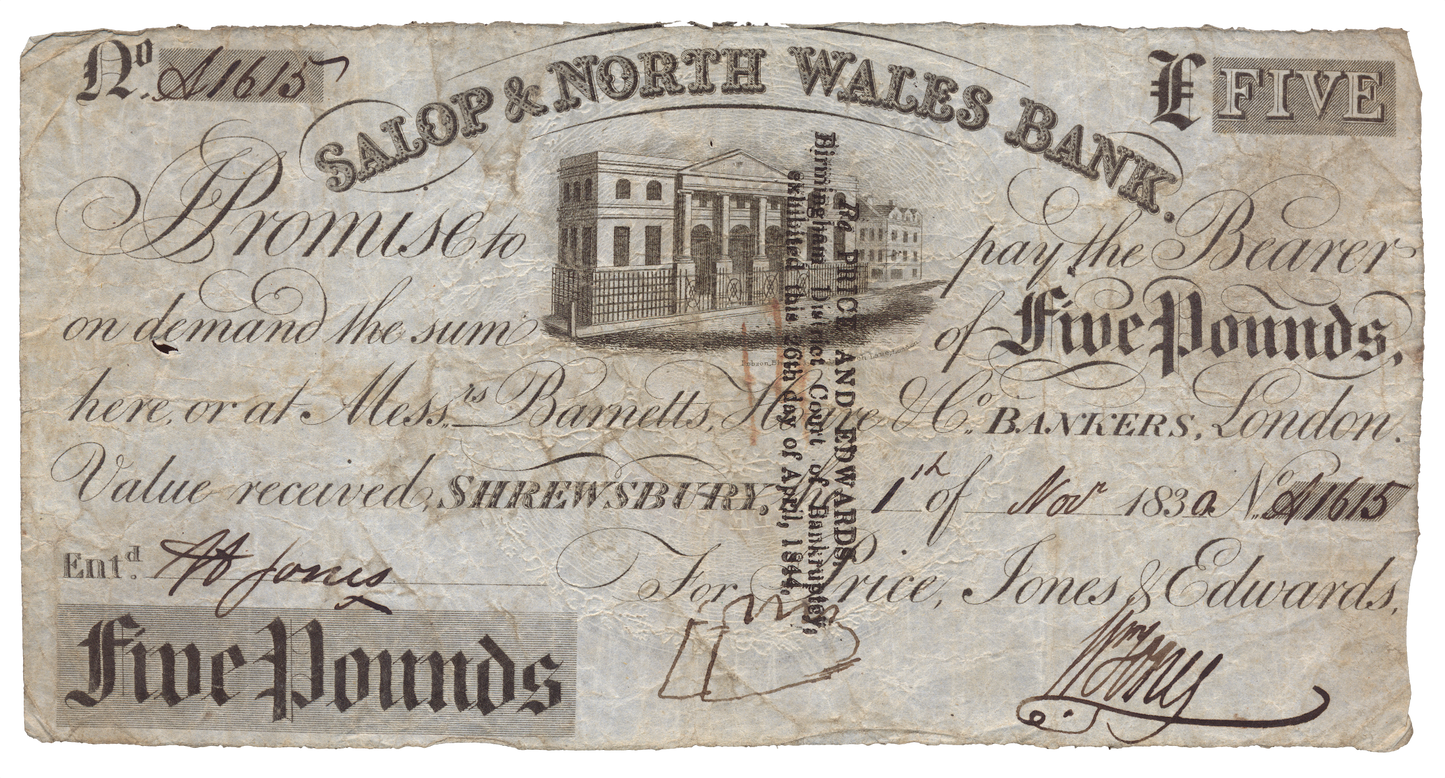 No. A1615
SALOP & NORTH WALES BANK.
£ FIVE
I Promise to pay the Bearer
on demand the sum of Five Pounds,
here, or at Messrs. Barnetts, Hoare & Co. BANKERS, London.
Value received, SHREWSBURY, the 1th of Novr 1830 No. A1615
Entd. Jones
For Price, Jones & Edwards,
Five Pounds
Wm Jones
Re PRICE AND EDWARDS,
Birmingham District Court of Bankruptcy,
exhibited this 26th day of April, 1844,